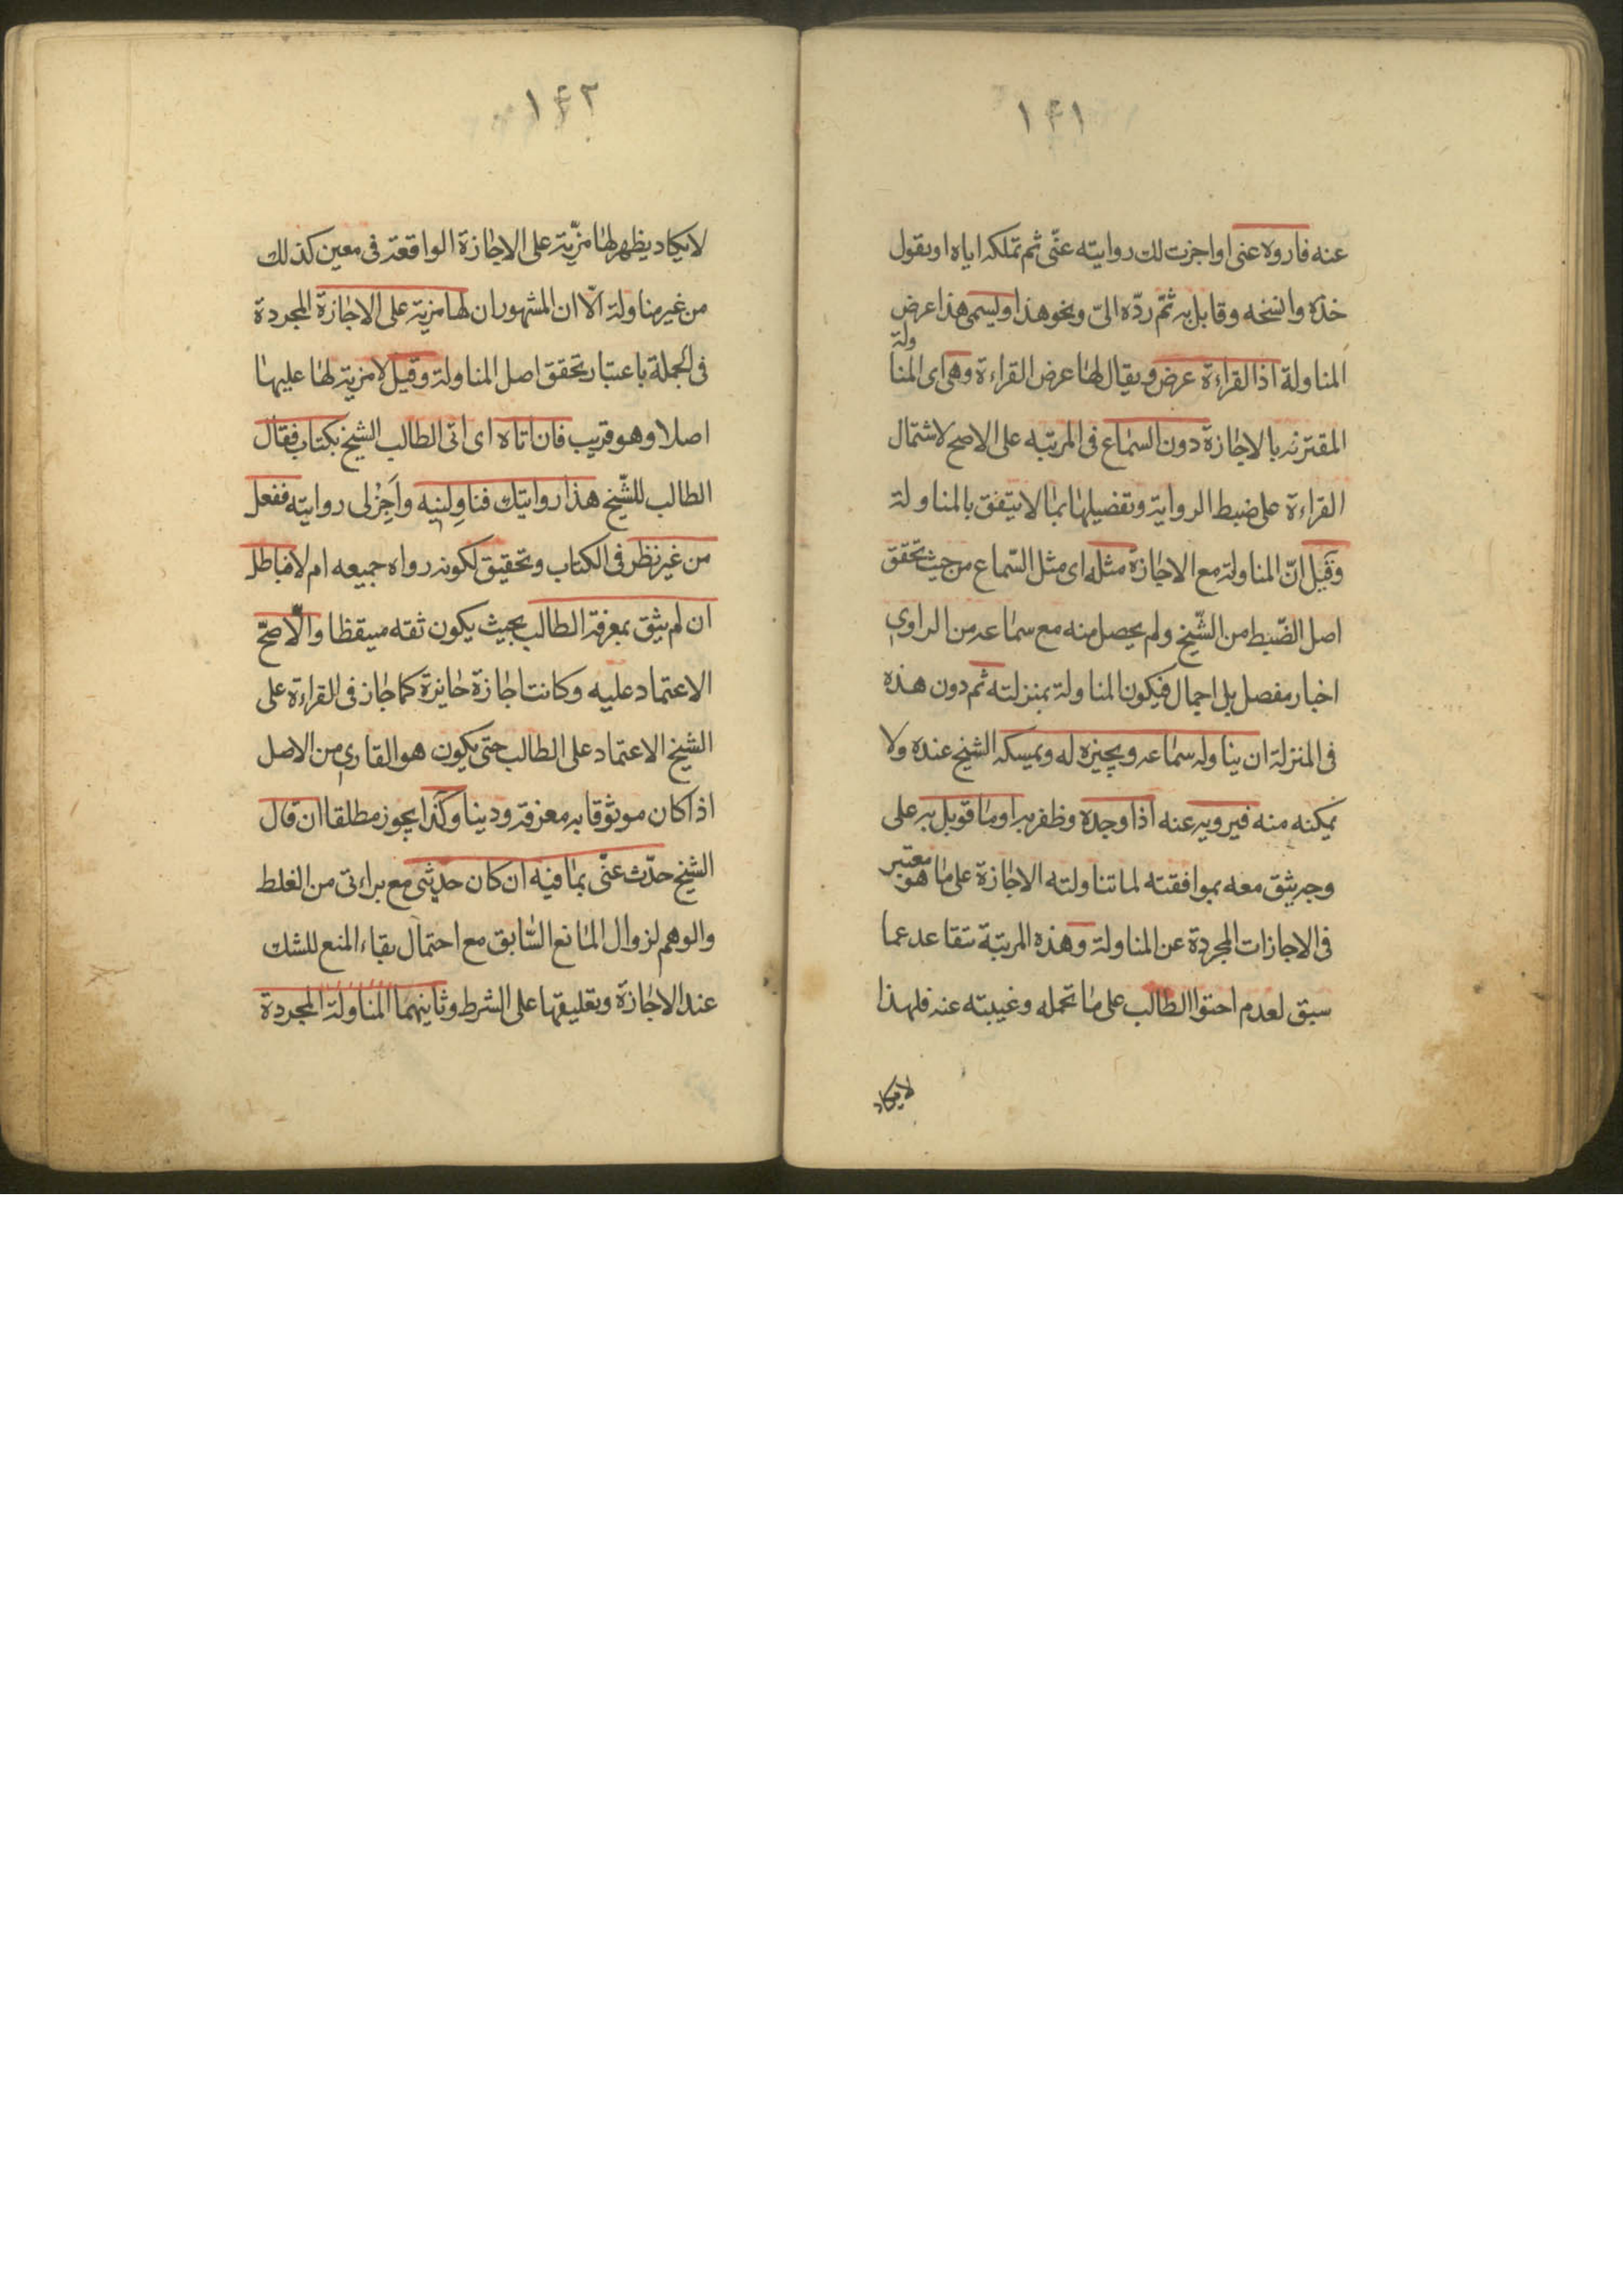 ١٤١
عنه فاروه عنى او اجزت لك روايته عنّى ثم تملكه اياه او يقول
خذه وانسخه وقابل به ثمّ ردّه الىّ ونحو هذا وليسمى هذا عرض
المناولة اذا القراءة عرض ويقال لها عرض القراءة وهى اى المناولة
المقترنه بالاجازة دون السماع فى المرتبه على الاصح لاشتمال
القراءة على ضبط الرواية وتفضيلها بما لا يتفق بالمناولة
وقيل انّ المناولة مع الاجازة مثله اى مثل السّماع من حيث تحقق
اصل الضّبط من الشّيخ ولم يحصل منه مع سماعه من الراوي
اخبار مفصل بل اجمال فيكون المناولة بمنزلته ثم دون هذه
فى المنزلة ان يناوله سماعه ويجيزه له ويمسكه الشيخ عنده ولا
يمكنه منه فيرويه عنه اذا وجده وظفر به او ما قوبل به على
وجه يثق معه بموافقته لما تناولته الاجازة على ما هو معتبر
فى الاجازات المجردة عن المناولة وهذه المرتبة تتقاعد عما
سبق لعدم احتوا الطالب على ما تحمله وغيبته عنه فلهذا
لا يكاد
١٤٢
لا يكاد يظهر لها مزيّة على الاجازة الواقعة فى معين كذلك
من غير مناولة الّا ان المشهور ان لها مزية على الاجازة المجردة
فى الجملة باعتبار تحقق اصل المناولة وقيل لا مزية لها عليها
اصلا وهو قريب فان اتاه اى اتى الطالب الشيخ بكتاب فقال
الطالب للشّيخ هذا روايتك فناوِلنيه واَجِزْ لى روايته ففعل
من غير نظر فى الكتاب وتحقيق لكونه رواه جميعه ام لا فباطل
ان لم يثق بمعرفة الطالب بحيث يكون ثقه ميقظا والّا صحّ
الاعتماد عليه وكانت اجازة جائزة كما جاز فى القراءة على
الشيخ الاعتماد على الطالب حتى يكون هو القاري من الاصل
اذا كان موثوقا به معرفة ودينا وكذا يجوز مطلقا ان قال
الشيخ حدّث عنّى بما فيه ان كان حديثى مع براءتى من الغلط
والوهم لزوال المانع السّابق مع احتمال بقاء المنع للشك
عند الاجازة وتعليقها على الشرط وثانيهما المناولة المجردة